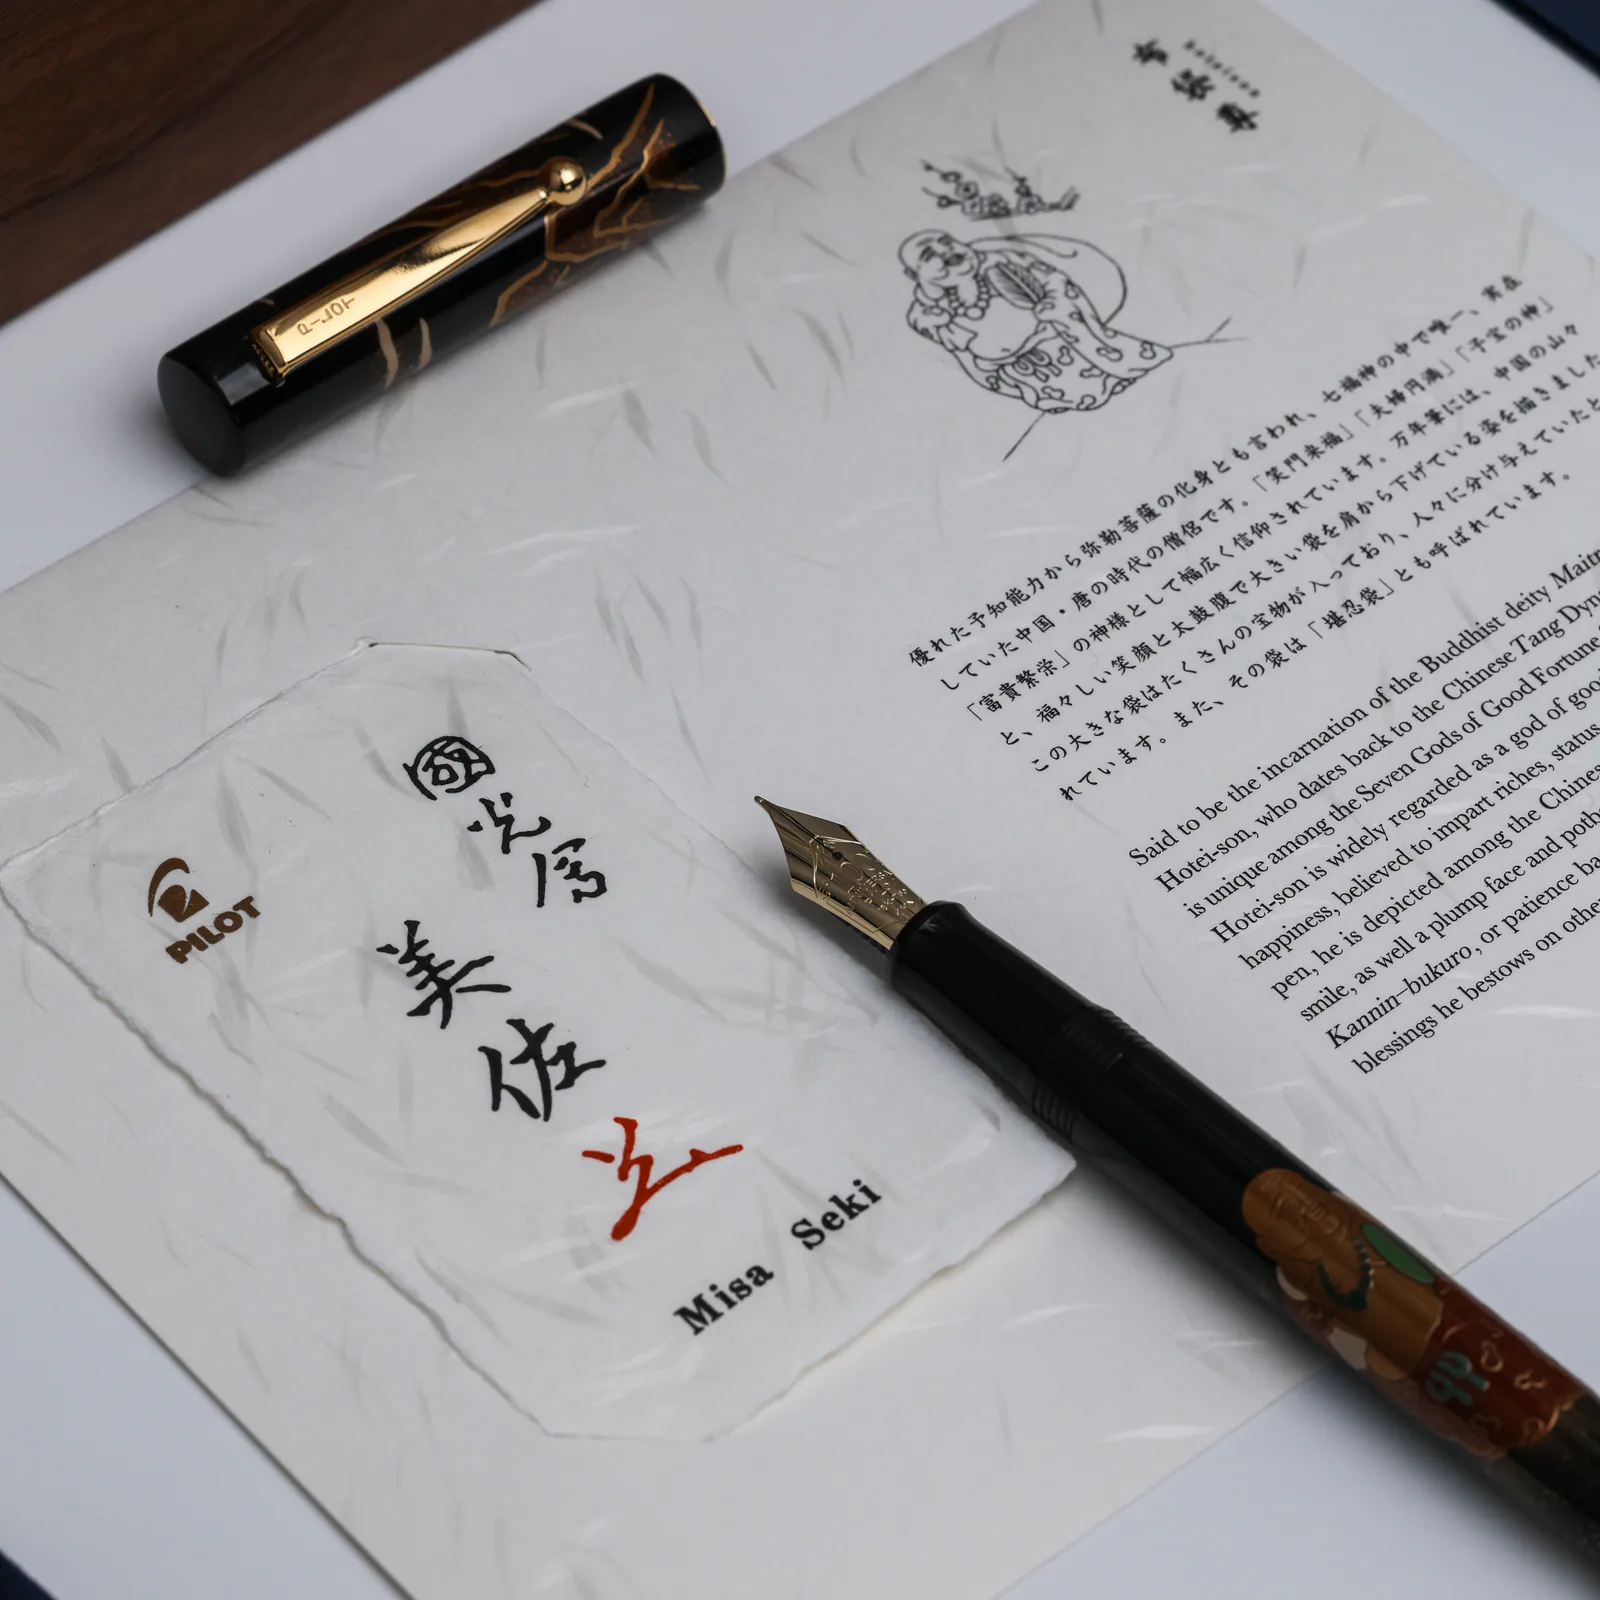 布袋尊
Hoteison
優れた予知能力から弥勒菩薩の化身とも言われ、七福神の中で唯一、実在
していた中国・唐の時代の僧侶です。「笑門来福」「夫婦円満」「子宝の神」
「富貴繁栄」の神様として幅広く信仰されています。万年筆には、中国の山々
と、福々しい笑顔と太鼓腹で大きい袋を肩から下げている姿を描きました
この大きな袋はたくさんの宝物が入っており、人々に分け与えていたと
れています。また、その袋は「堪忍袋」とも呼ばれています。
Said to be the incarnation of the Buddhist deity
Hotei-son, who dates back to the Chinese Tang
is unique among the Seven Gods of Good Fortune
Hotei-son is widely regarded as a god of
happiness, believed to impart riches, status
pen, he is depicted among the
smile, as well a plump face and
Kannin–bukuro, or patience
blessings he bestows on
PILOT
PILOT
國光會
美佐
Misa Seki